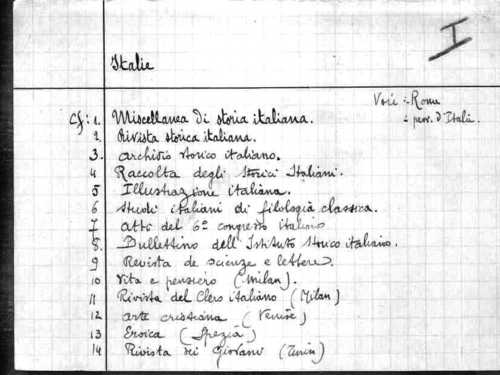 I
Italie
Voir :- Rome
- prov. d'Italie
Cf: 1. Miscellanea di storia italiana.
2. Rivista storica italiana.
3. archivio storico italiano.
4 Raccolta degli Storici Italiani.
5 Illustrazione italiana.
6 Studi italiani di filologia classica.
7 Atti del 6º congresso italiano
8. Bullettino dell'Istituto Storico italiano.
9 Revista de scienze e lettere.
10 Vita e pensiero (Milan).
11 Rivista del Clero italiano (Milan)
12 arte cristiana (Venise)
13 Eroica (Spezia)
14 Rivista dei Giovani (Turin)